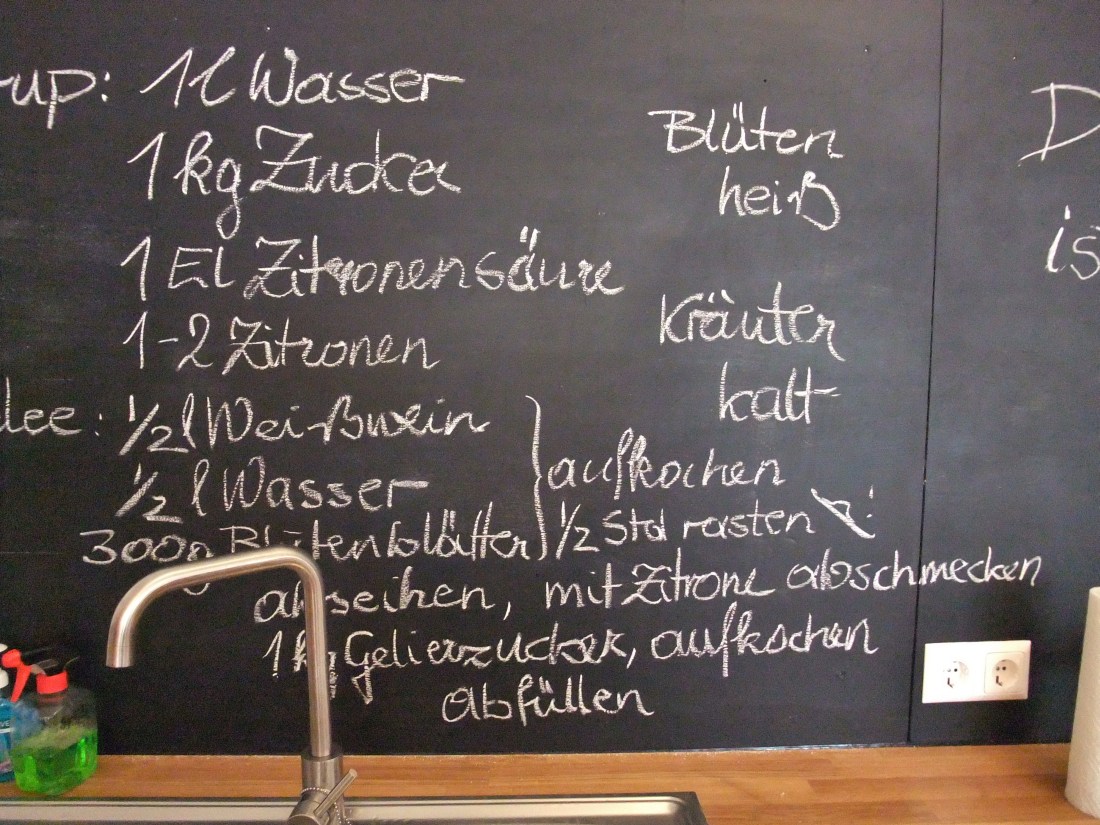 rup: 1l Wasser
1 kg Zucker
1 El Zitronensäure
1-2 Zitronen
Blüten
heiß
Kräuter
kalt
lee: 1/2 l Weißwein
1/2 l Wasser
300g Blütenblätter
aufkochen
1/2 Std rasten
abseihen, mit Zitrone abschmecken
1kg Gelierzucker, aufkochen
abfüllen
D
is